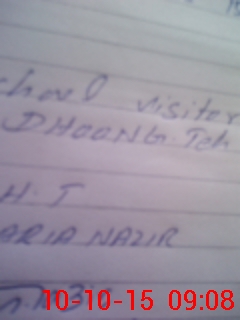 chool visiter
DHOONG. Teh
H.T
ARIA NAZIR
10-10-15 09:08